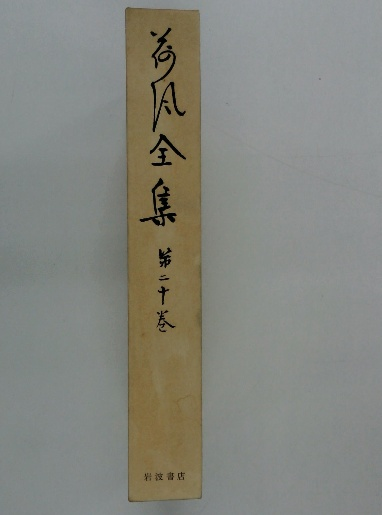 荷風全集
第二十巻
岩波書店